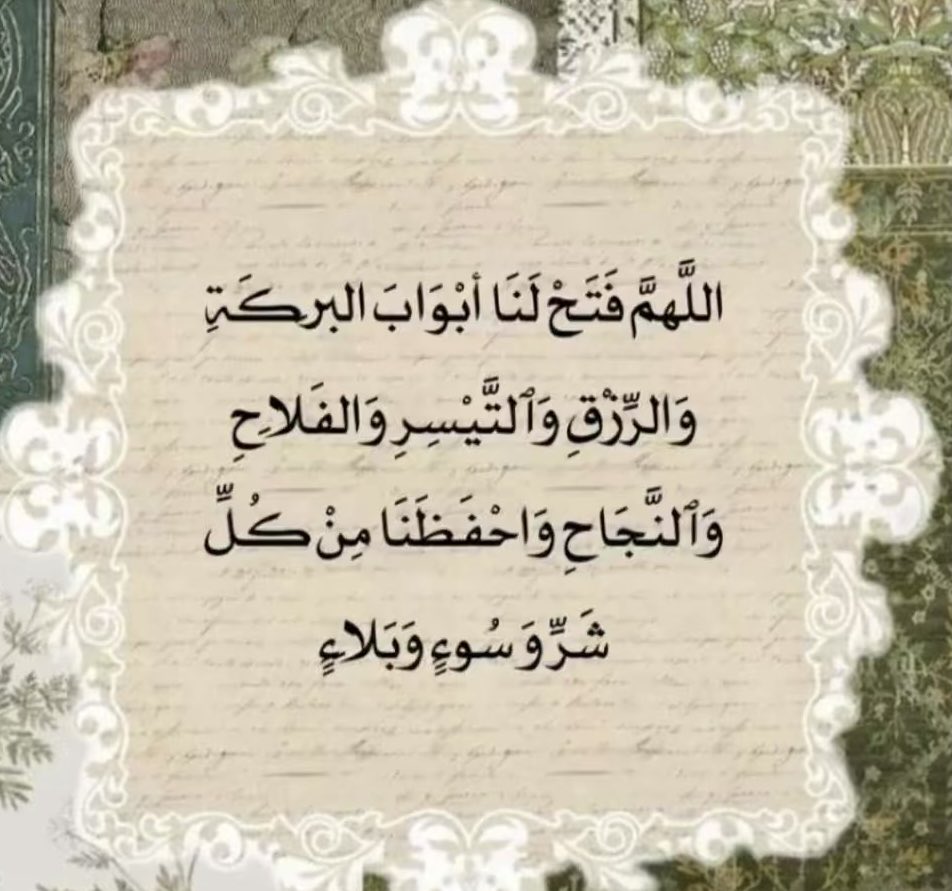 اللَّهمَّ فَتَحْ لَنَا أبْوَابَ البركَةِ
وَالرِّزْقِ وَٱلتَّيْسِرِ وَالفَلاحِ
وَٱلنَّجَاحِ وَاحْفَظَنَا مِنْ كُلِّ
شَرٍّ وَسُوءٍ وَبَلاءٍ